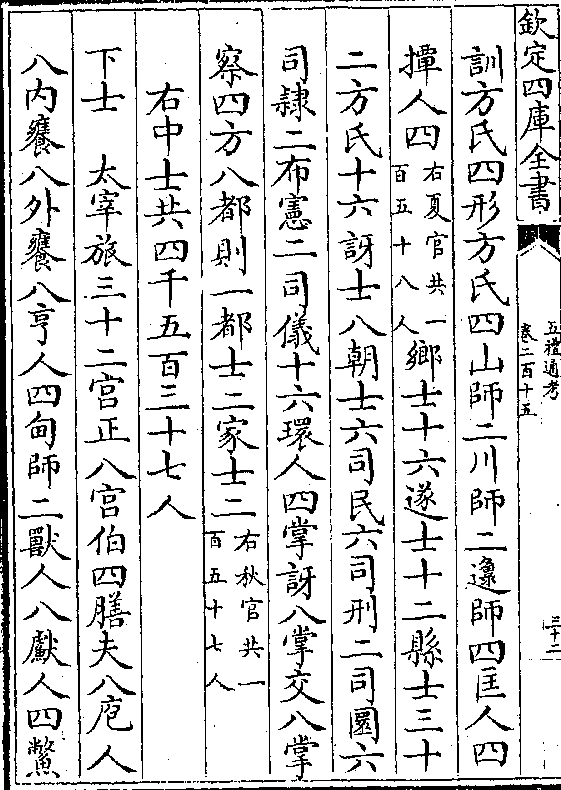 欽定四庫全書
五禮通考
卷二百十五
三十二
訓方氏四形方氏四山師二川師二邍師四匡人四
撢人四右夏官共一百五十八人鄉士十六遂士十二縣士三十
二方氏十六訝士八朝士六司民六司刑二司圜六
司隸二布憲二司儀十六環人四掌訝八掌交八掌
察四方八都則一都士二家士二右秋官共一百五十七人
右中士共四千五百三十七人
下士　太宰旅三十二宫正八宫伯四膳夫八庖人
八内饔八外饔八亨人四甸師二獸人八䱷人四鱉